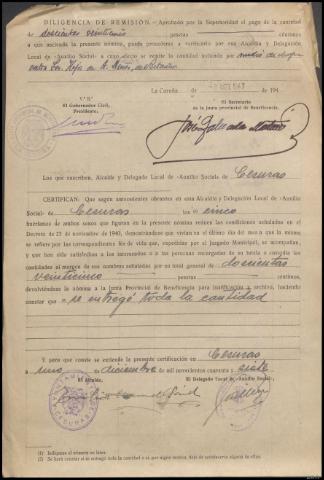 DILIGENCIA DE REMISIÓN.—Aprobado por la Superioridad el pago de la cantidad
de doscientas veinticinco pesetas céntimos
a que asciende la presente nómina, puede procederse a verificarlo por esa Alcaldía y Delegación
Local de «Auxilio Social» a cuyo efecto se remite la cantidad indicada por medio de
La Coruña, de 194
V.º B.º
El Gobernador Civil,
Presidente;
El Secretario
de la Junta provincial de Beneficencia.
Los que suscriben, Alcalde y Delegado Local de «Auxilio Social» de Cesuras
CERTIFICAN: Que según antecedentes obrantes en esta Alcaldía y Delegación Local de «Auxilio
Social» de Cesuras los cinco
huérfanos de ambos sexos que figuran en la presente nómina reúnen las condiciones señaladas en el
Decreto de 23 de noviembre de 1940, demostrándose que vivían en el último día del mes a que la misma
se refiere por las correspondientes fes de vida, que expedidas por el Juzgado Municipal, se acompañan,
y que han sido satisfechas a los interesados o a las personas encargadas de su tutela o custodia las
cantidades al margen de sus nombres señaladas por un total general de doscientas
veinticinco pesetas céntimos,
devolviéndose la nómina a la Junta Provincial de Beneficencia para justificación y archivo, haciendo
constar que se entregó toda la cantidad
Y para que conste se extiende la presente certificación en Cesuras
a uno de diciembre de mil novecientos cuarenta y siete
El Alcalde,
El Delegado Local de «Auxilio Social»,
(1) Indíquese el número en letra.
(2) Se hará constar si se entregó toda la cantidad o si por algún motivo deja de satisfacerse alguna de ellas.